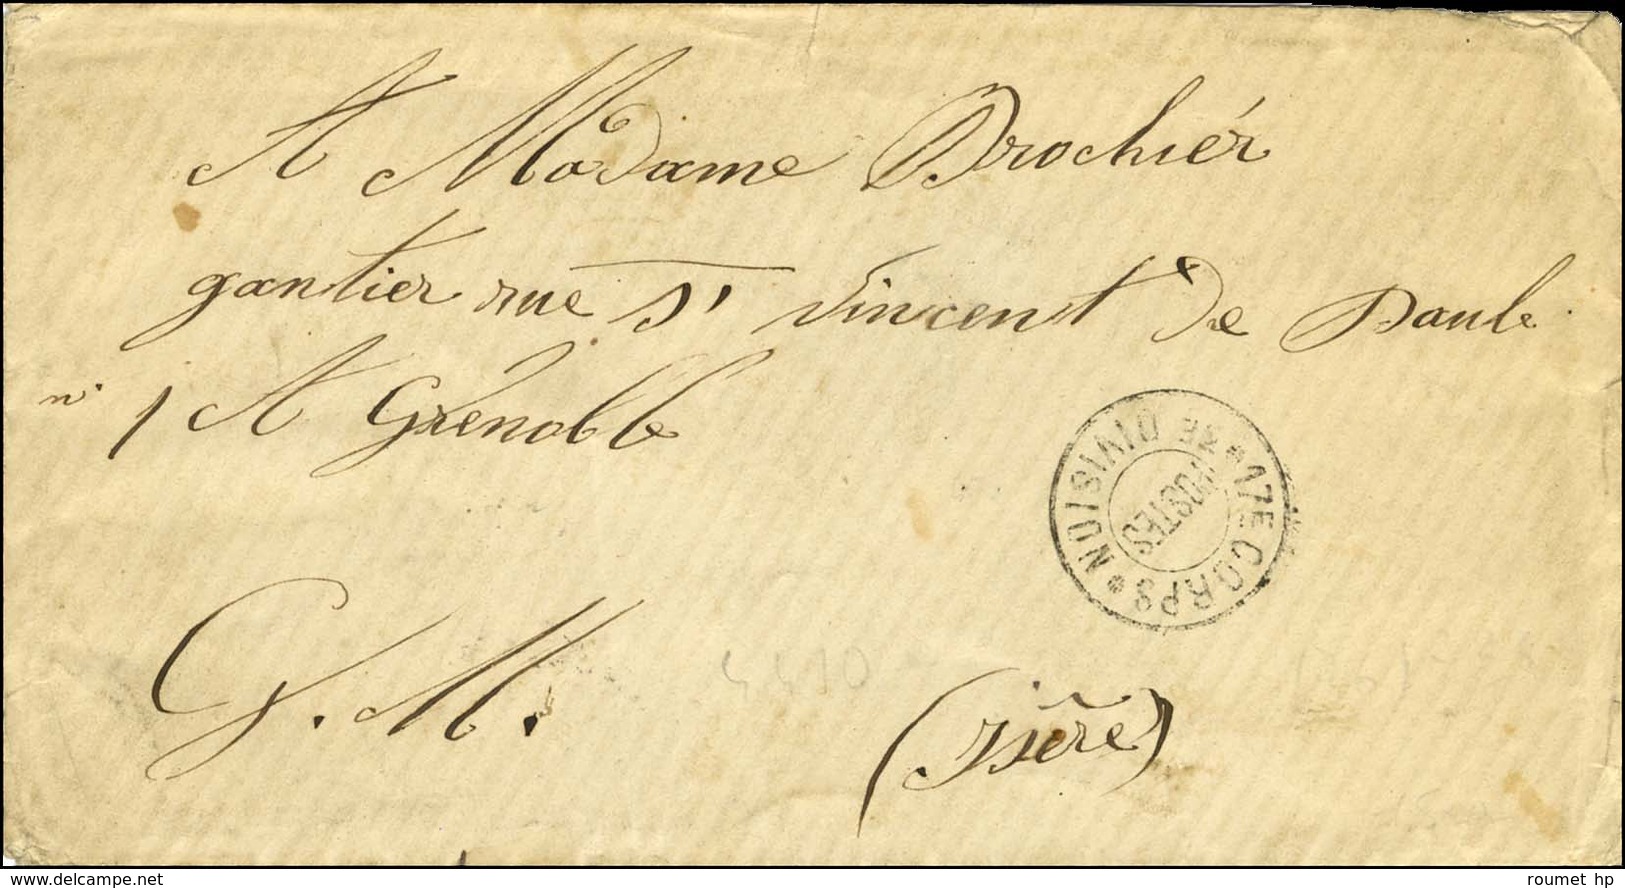 A Madame Brochier
gantier rue St Vincent de Paule
n° 1 A Grenoble
* 17E CORPS * DIVISION
POSTES
G. M.
(Isère)
www.delcampe.net
roumet hp